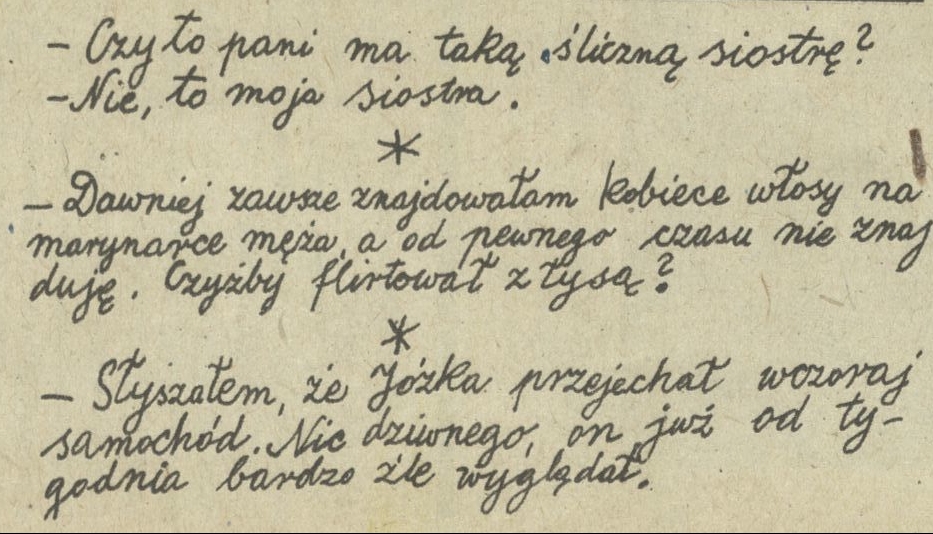 - Czy to pani ma taką śliczną siostrę?
- Nie, to moja siostra.
*
- Dawniej zawsze znajdowałam kobiece włosy na
marynarce męża, a od pewnego czasu nie znaj
duję. Czyżby flirtował z łysą?
*
- Słyszałem, że Józka przejechał wczoraj
samochód. Nic dziwnego, on już od ty-
godnia bardzo źle wyglądał.